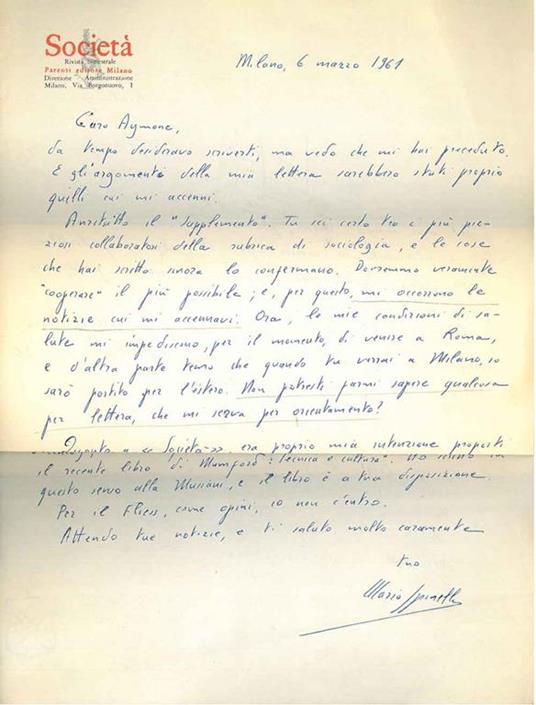 Società
Rivista bimestrale
Parenti editore Milano
Direzione Amministrazione
Milano, Via Borgonuovo, 1
Milano, 6 marzo 1961
Caro Aymone,
da tempo desideravo scriverti, ma vedo che mi hai preceduto.
E gli argomenti della mia lettera sarebbero stati proprio
quelli cui mi accenni.
Anzitutto il "supplemento". Tu sei certo tra i più pre-
ziosi collaboratori della rubrica di sociologia, e le cose
che hai scritto sinora lo confermano. Dovremmo veramente
"cooperare" il più possibile; e, per questo, mi occorrono le
notizie cui mi accennavi. Ora, le mie condizioni di sa-
lute mi impediscono, per il momento, di venire a Roma,
e d'altra parte temo che quando tu verrai a Milano, io
sarò partito per l'estero. Non potresti farmi sapere qualcosa
per lettera, che mi serva per orientamento?
a «Società», era proprio mia intenzione proporti
il recente libro di Mumford: "Tecnica e cultura". Ho scritto in
questo senso alla Musiani, e il libro è a tua disposizione.
Per il Fliess, come opini, io non c'entro.
Attendo tue notizie, e ti saluto molto caramente
tuo
Mario Spinella